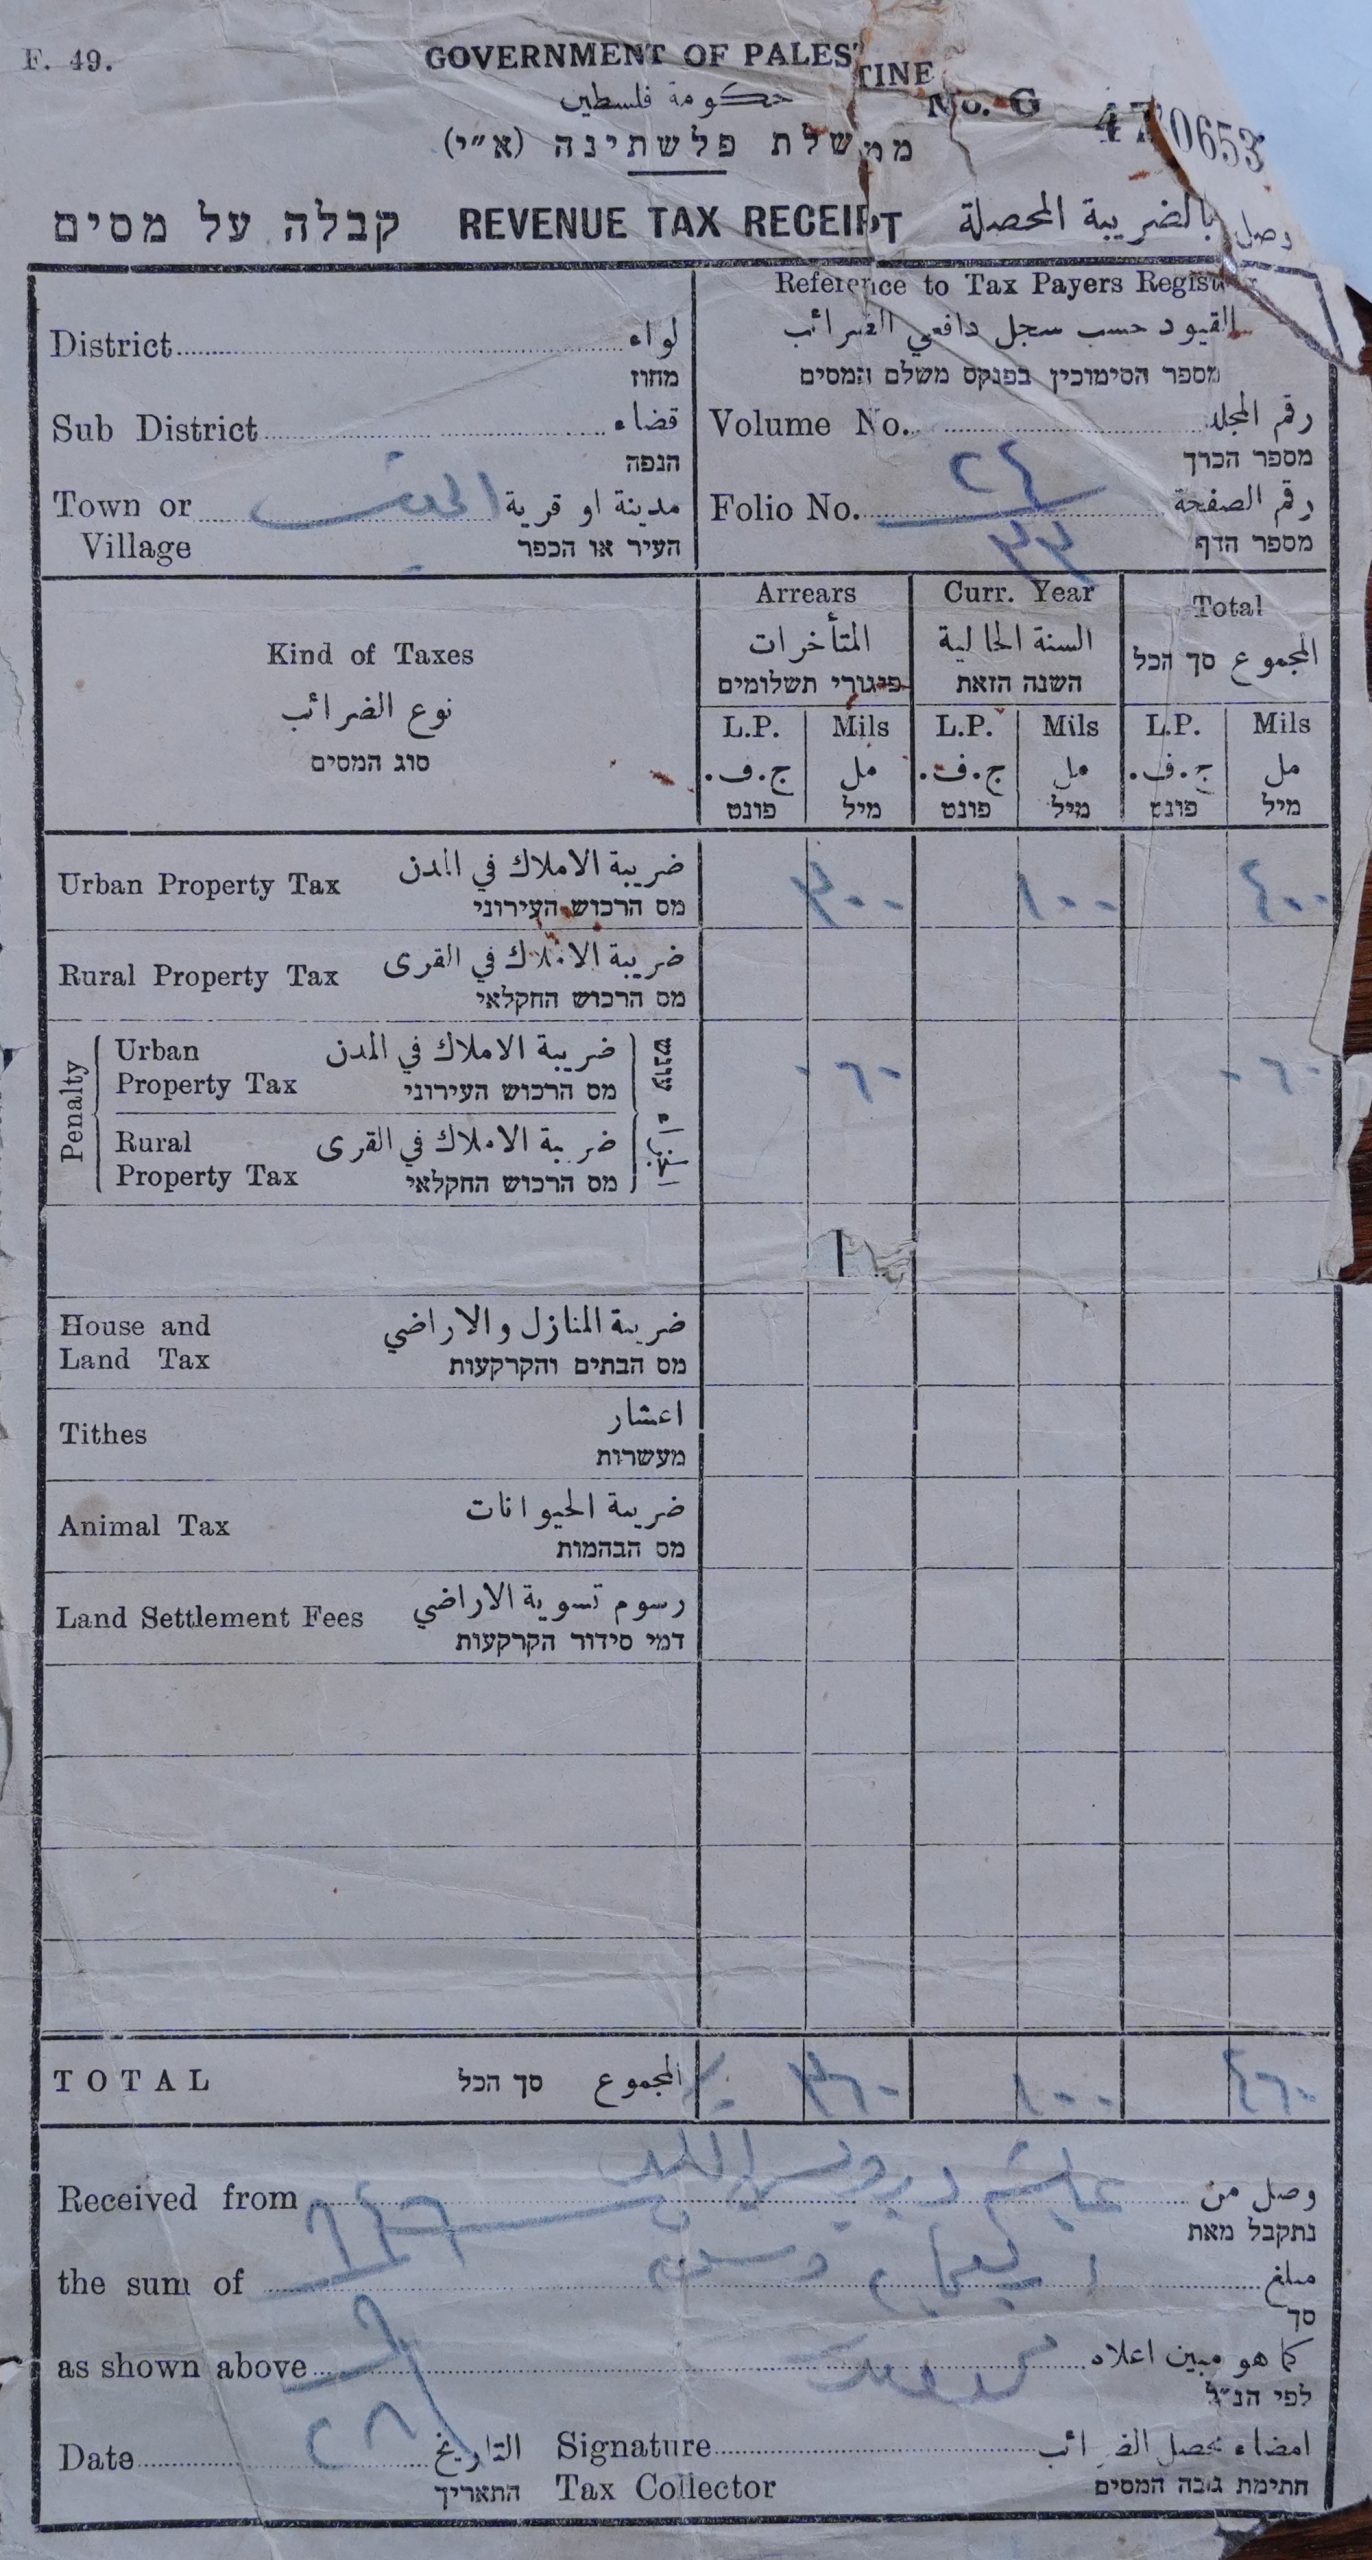 F. 49.
GOVERNMENT OF PALESTINE
حكومة فلسطين
No. G 470653
ממשלת פלשתינה (א״י)
קבלה על מסים REVENUE TAX RECEIPT وصل بالضريبة المحصلة
Reference to Tax Payers Register
القيود حسب سجل دافعي الضرائب
מספר הסימוכין בפנקס משלם המסים
District لواء
מחוז
Sub District قضاء
הנפה
Town or Village مدينة او قرية
העיר או הכפר
Volume No. رقم المجلد
מספר הכרך
٢٤
Folio No. رقم الصفحة
מספר הדף
٣٣
Kind of Taxes
نوع الضرائب
סוג המסים
Arrears
المتأخرات
פיגורי תשלומים
Curr. Year
السنة الحالية
השנה הזאת
Total
المجموع סך הכל
L.P. Mils L.P. Mils L.P. Mils
ج.ف. مل ج.ف. مل ج.ف. مل
פונט מיל פונט מיל פונט מיל
Urban Property Tax ضريبة الاملاك في المدن ٣٠٠ ١٠٠ ٤٠٠
מס הרכוש העירוני
Rural Property Tax ضريبة الاملاك في القرى
מס הרכוש החקלאי
Penalty
Urban Property Tax ضريبة الاملاك في المدن ٠٦٠ ٠٦٠
מס הרכוש העירוני
עונש
Rural Property Tax ضريبة الاملاك في القرى
מס הרכוש החקלאי
House and Land Tax ضريبة المنازل والاراضي
מס הבתים והקרקעות
Tithes اعشار
מעשרות
Animal Tax ضريبة الحيوانات
מס הבהמות
Land Settlement Fees رسوم تسوية الاراضي
דמי סידור הקרקעות
TOTAL סך הכל المجموع ٣٦٠ ١٠٠ ٤٦٠
Received from وصل من
נתקבל מאת
the sum of مبلغ
סך
as shown above كما هو مبين اعلاه
לפי הנ״ל
Date التاريخ Signature امضاء محصل الضرائب
התאריך Tax Collector חתימת גובה המסים